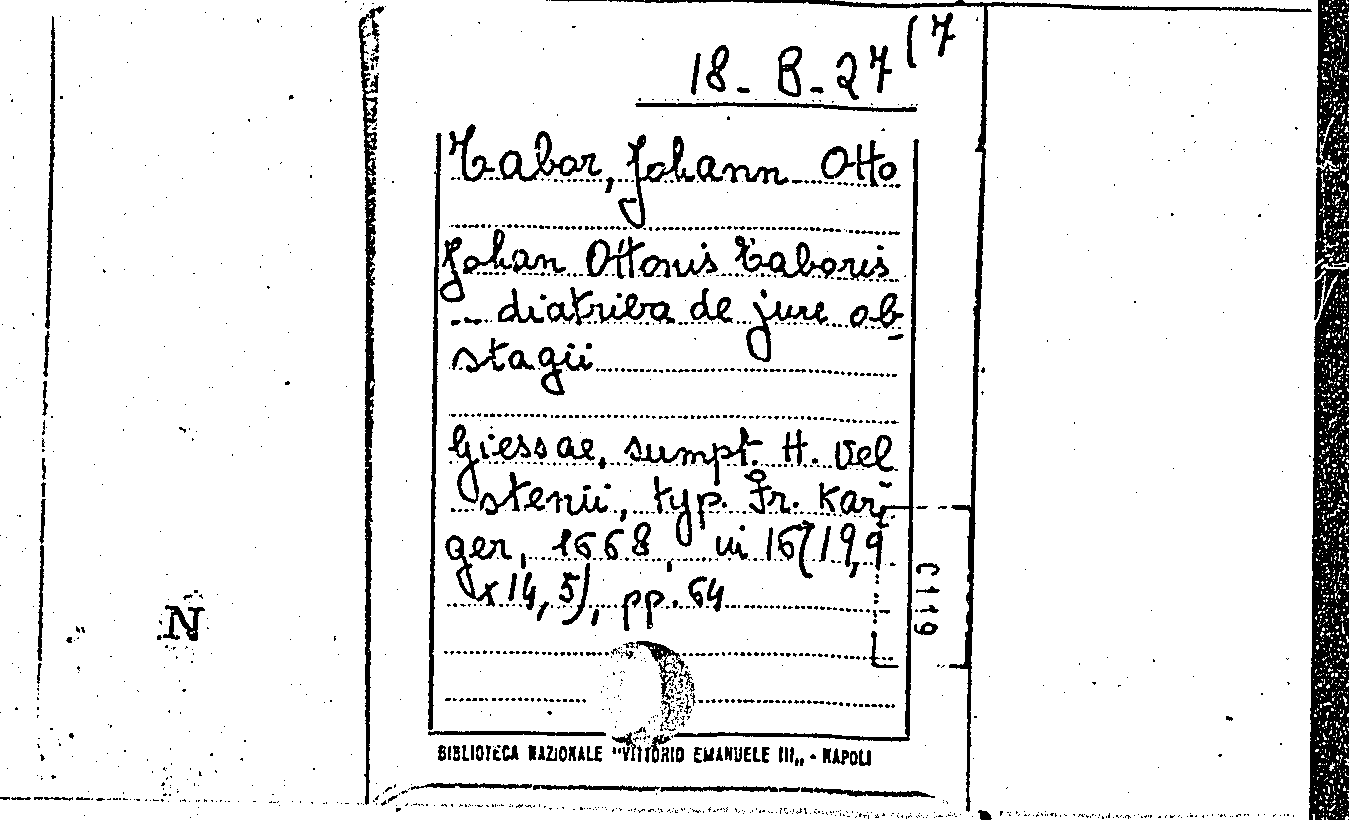 18-B-27(7
Tabor, Johann Otto
Johan Ottonis Taboris
... diatriba de jure ob-
stagii
Giessae, sumpt. H. Vel
stenii, typ. Fr. Kar-
ger, 1668, in 16(19,9
x14,5), pp. 64
C119
N
BIBLIOTECA NAZIONALE "VITTORIO EMANUELE III„ - NAPOLI